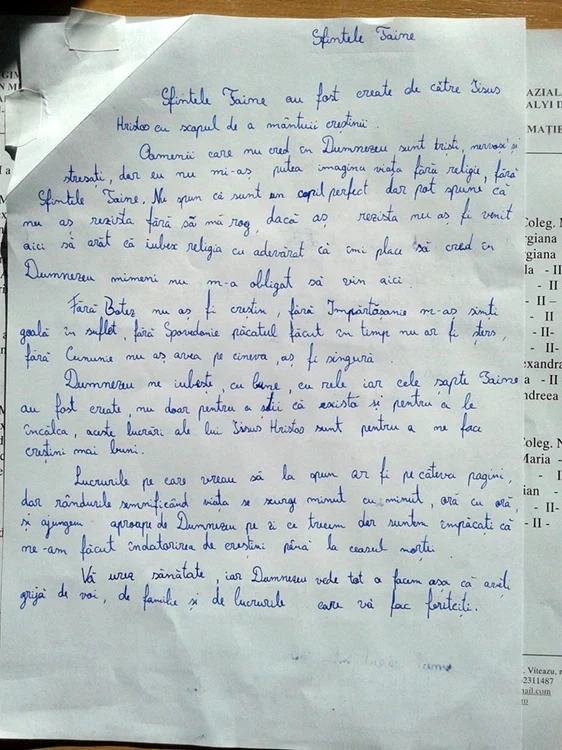 Sfintele Taine
Sfintele Taine au fost create de către Iisus
Hristos cu scopul de a mântuii creștinii.
Oamenii care nu cred în Dumnezeu sunt triști, nervoși și
stresați, dar eu nu mi-aș putea imagina viața fără religie, fără
Sfintele Taine. Nu spun că sunt un copil perfect dar pot spune că
nu aș rezista fără să mă rog, dacă aș rezista nu aș fi venit
aici să arăt că iubesc religia cu adevărat că îmi place să cred în
Dumnezeu nimeni nu m-a obligat să vin aici.
Fără Botez nu aș fi creștin, fără Împărtășanie m-aș simți
goală în suflet, fără Spovedonie păcatul făcut în timp nu ar fi șters,
fără Cununie nu aș avea pe cineva, aș fi singură
Dumnezeu ne iubește, cu bune, cu rele iar cele șapte Taine
au fost create, nu doar pentru a știi că există și pentru a le
încălca, aceste lucrări ale lui Iisus Hristos sunt pentru a ne face
creștini mai buni.
Lucrurile pe care vreau să la spun ar fi pe câteva pagini,
dar rândurile semnificând viața se scurg minut cu minut, oră cu oră,
și ajungem aproape de Dumnezeu pe zi ce trecem dar suntem împăcați că
ne-am făcut îndatorirea de creștini până la ceasul morții.
Vă urez sănătate, iar Dumnezeu vede tot a facem așa că aveți
grijă de voi, de familie și de lucrurile care vă fac fericiți.
AZIAL
ALYI D
MAȚIE
Coleg. N
rgiana
rgiana
la - II
- II
- II -
- II
- II-
- II-
exandra
a - II
ndreea
Coleg. N
Maria -
- II
ian -
- II -
- II -
. Viteazu, n
2311487
ail.com
ro